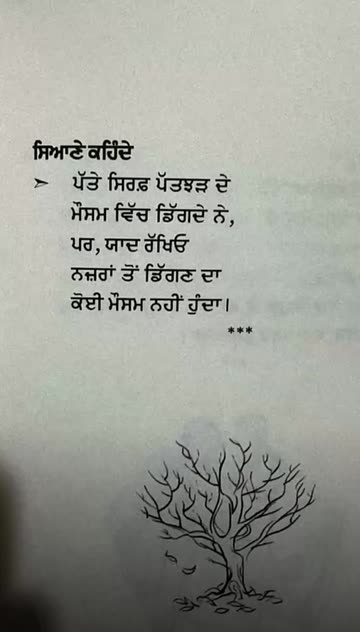 ਸਿਆਣੇ ਕਹਿੰਦੇ
➣ ਪੱਤੇ ਸਿਰਫ਼ ਪੱਤਝੜ ਦੇ
ਮੌਸਮ ਵਿੱਚ ਡਿੱਗਦੇ ਨੇ,
ਪਰ, ਯਾਦ ਰੱਖਿਓ
ਨਜ਼ਰਾਂ ਤੋਂ ਡਿੱਗਣ ਦਾ
ਕੋਈ ਮੌਸਮ ਨਹੀਂ ਹੁੰਦਾ।
***